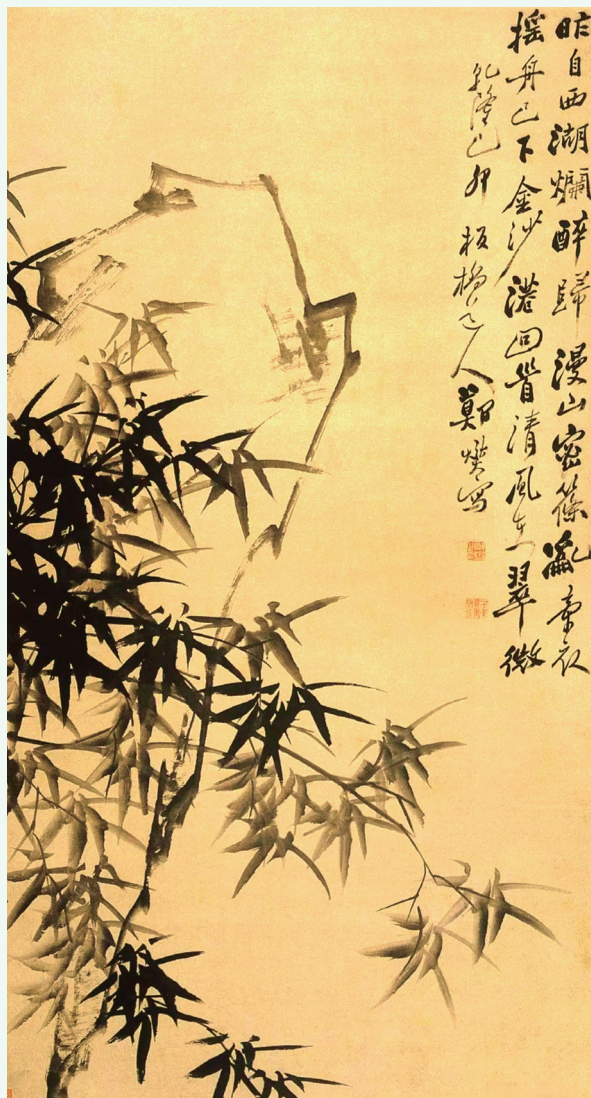 昨自西湖烂醉歸漫山密篠亂牽衣
摇舟已下金沙港回首清風在翠微
乾隆己卯板橋道人鄭燮寫